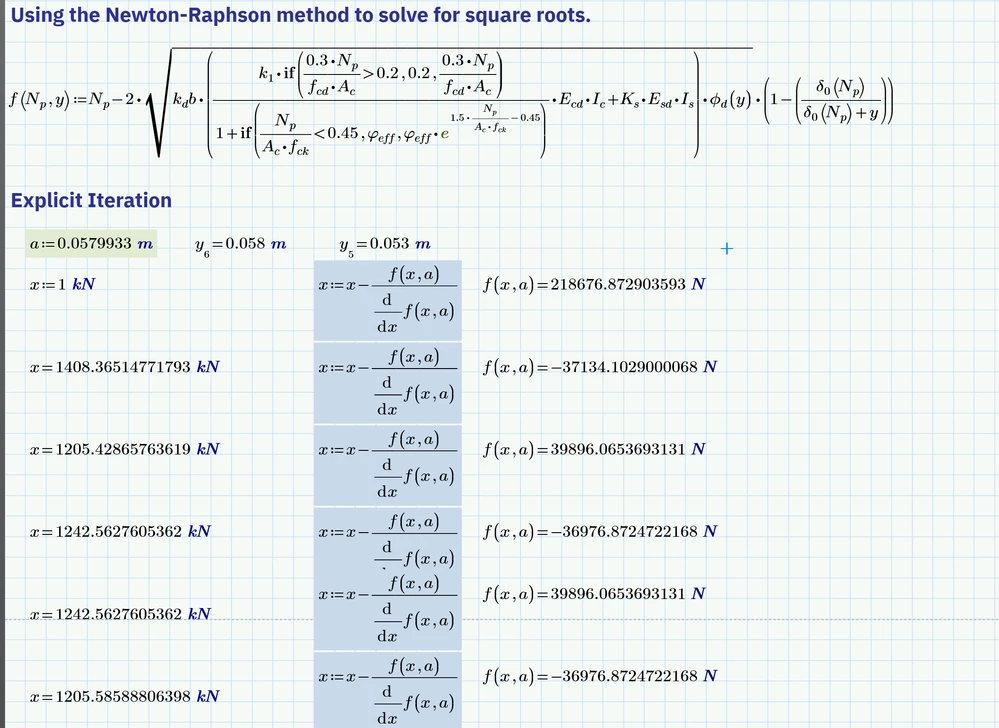 Using the Newton-Raphson method to solve for square roots.
f(N_p, y) := N_p − 2 · √(k_d b · ((k_1 · if(0.3 · N_p / (f_cd · A_c) > 0.2, 0.2, 0.3 · N_p / (f_cd · A_c))) / (1 + if(N_p / (A_c · f_ck) < 0.45, φ_eff, φ_eff · e^(1.5 · N_p / (A_c · f_ck) − 0.45))) · E_cd · I_c + K_s · E_sd · I_s) · ϕ_d(y) · (1 − (δ_0(N_p) / (δ_0(N_p) + y)))
Explicit Iteration
a := 0.0579933 m y_6 = 0.058 m y_5 = 0.053 m
x := 1 kN x := x − f(x, a) / (d/dx f(x, a)) f(x, a) = 218676.872903593 N
x = 1408.36514771793 kN x := x − f(x, a) / (d/dx f(x, a)) f(x, a) = −37134.1029000068 N
x = 1205.42865763619 kN x := x − f(x, a) / (d/dx f(x, a)) f(x, a) = 39896.0653693131 N
x = 1242.5627605362 kN x := x − f(x, a) / (d/dx f(x, a)) f(x, a) = −36976.8724722168 N
x = 1242.5627605362 kN x := x − f(x, a) / (d/dx f(x, a)) f(x, a) = 39896.0653693131 N
x = 1205.58588806398 kN x := x − f(x, a) / (d/dx f(x, a)) f(x, a) = −36976.8724722168 N